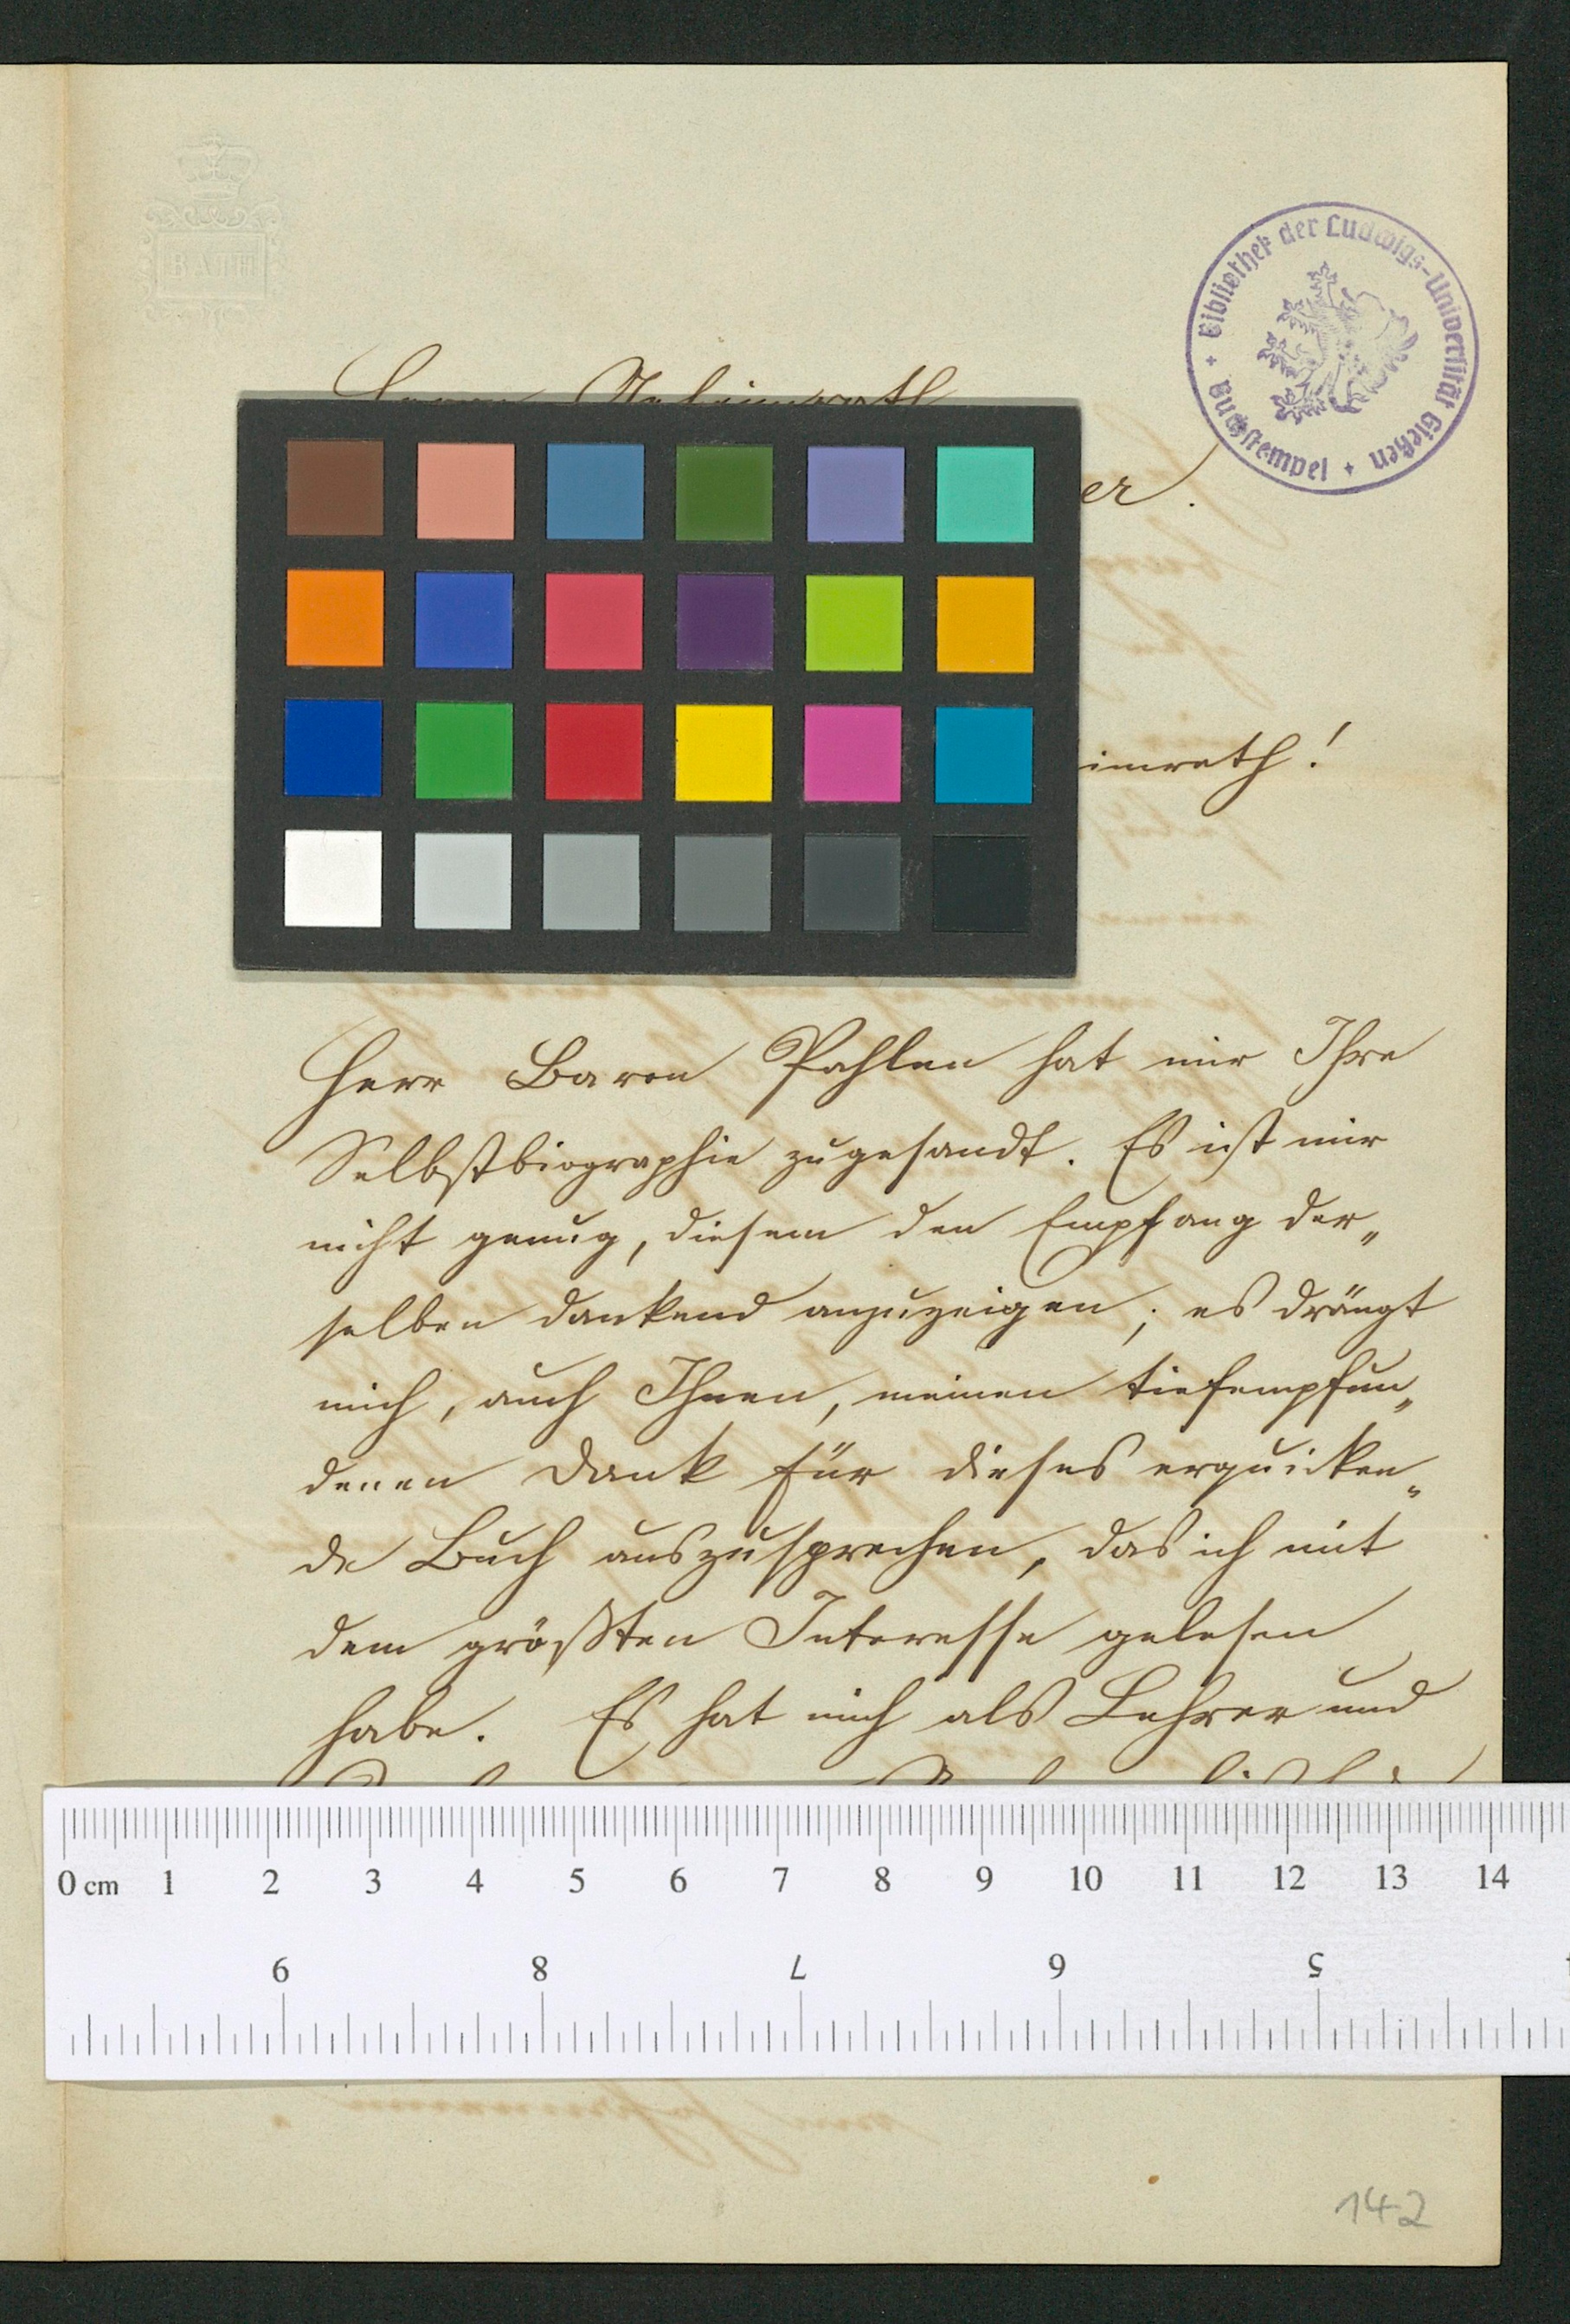 BATH
Bibliothek der Ludwigs-Universität Gießen
Buchstempel
Herrn Geheimrath
er.
imrath!
Herr Baron Pahlen hat mir Ihre
Selbstbiographie zugesandt. Es ist mir
nicht genug, diesem den Empfang der„
selben dankend anzuzeigen; es drängt
mich, auch Ihnen, meinen tiefempfun„
denen Dank für dieses erquicken„
de Buch auszusprechen, das ich mit
dem größten Interesse gelesen
habe. Es hat mich als Lehrer und
0 cm 1 2 3 4 5 6 7 8 9 10 11 12 13 14
9 8 7 6 5
142